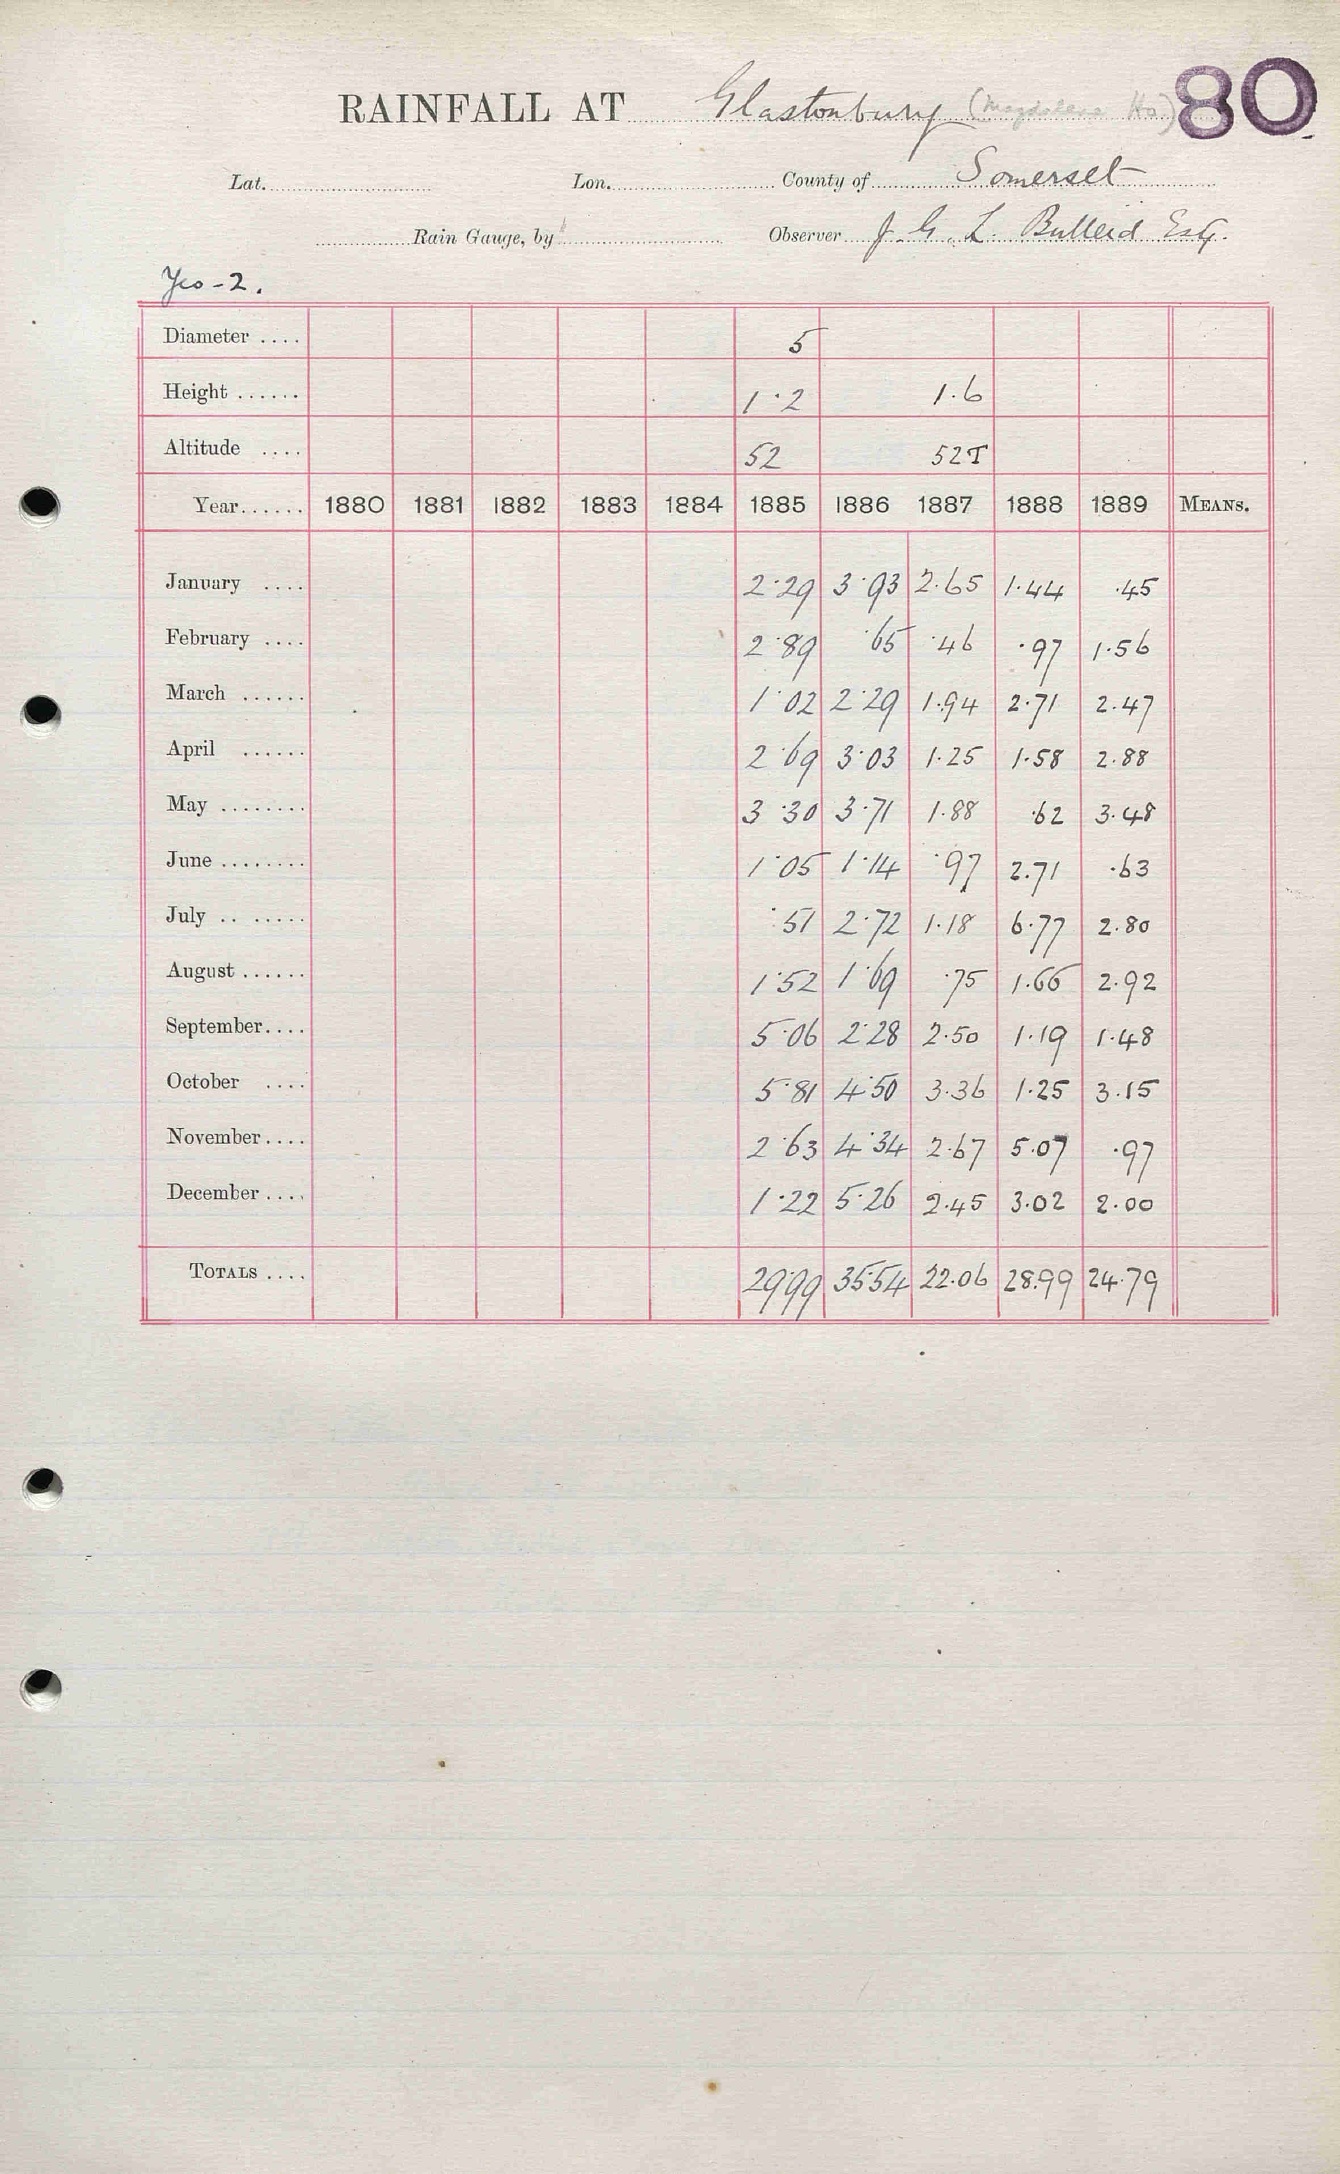 RAINFALL AT Glastonbury (Magdalene Ho) 80
Lat. Lon. County of Somerset
Rain Gauge, by Observer J. G. L. Bulleid Esq.
Yeo-2.
Diameter .... 5
Height ...... 1.2 1.6
Altitude .... 52 52T
Year...... 1880 1881 1882 1883 1884 1885 1886 1887 1888 1889 MEANS.
January .... 2.29 3.93 2.65 1.44 .45
February .... 2.89 .65 .46 .97 1.56
March ...... 1.02 2.29 1.94 2.71 2.47
April ...... 2.69 3.03 1.25 1.58 2.88
May ........ 3.30 3.71 1.88 .62 3.48
June ........ 1.05 1.14 .97 2.71 .63
July .. ..... .51 2.72 1.18 6.77 2.80
August ...... 1.52 1.69 .75 1.66 2.92
September.... 5.06 2.28 2.50 1.19 1.48
October .... 5.81 4.50 3.36 1.25 3.15
November.... 2.63 4.34 2.67 5.07 .97
December .... 1.22 5.26 2.45 3.02 2.00
TOTALS .... 29.99 35.54 22.06 28.99 24.79